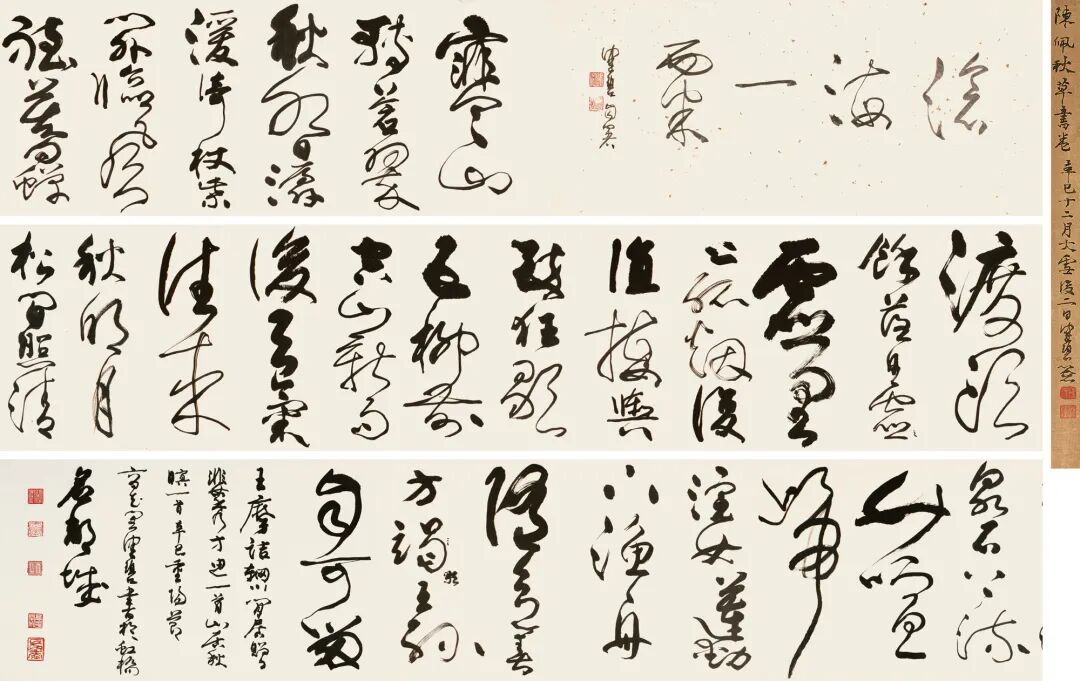 陳佩秋草書卷 辛巳十二月大雪後二日健碧簽
滄海一粟
健碧自署
寒山
轉蒼翠
秋水日潺
湲倚杖柴
門外臨風
聽暮蟬
渡頭
餘落日墟
墟里
上孤煙復
值接輿
醉狂歌
五柳前
空山新雨
後天氣
晚來
秋明月
松間照清
泉石上流
竹喧
歸
浣女蓮動
下漁舟
隨意春
芳歇王孫
自可留
王摩詰輞川閒居贈
裴秀才迪一首山居秋
暝一首辛巳重陽節
高花閣健碧書於虹橋
名都城